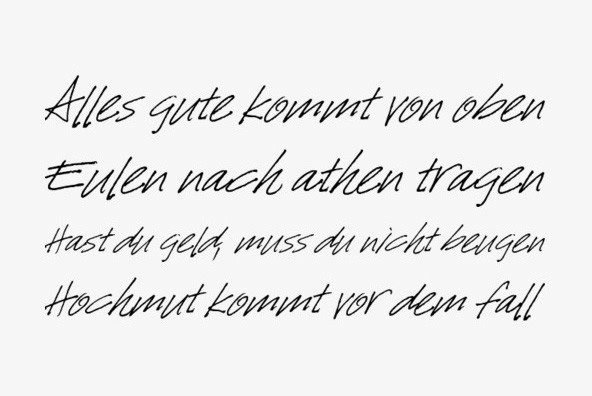 Alles gute kommt von oben
Eulen nach athen tragen
Hast du geld, muss du nicht beugen
Hochmut kommt vor dem fall